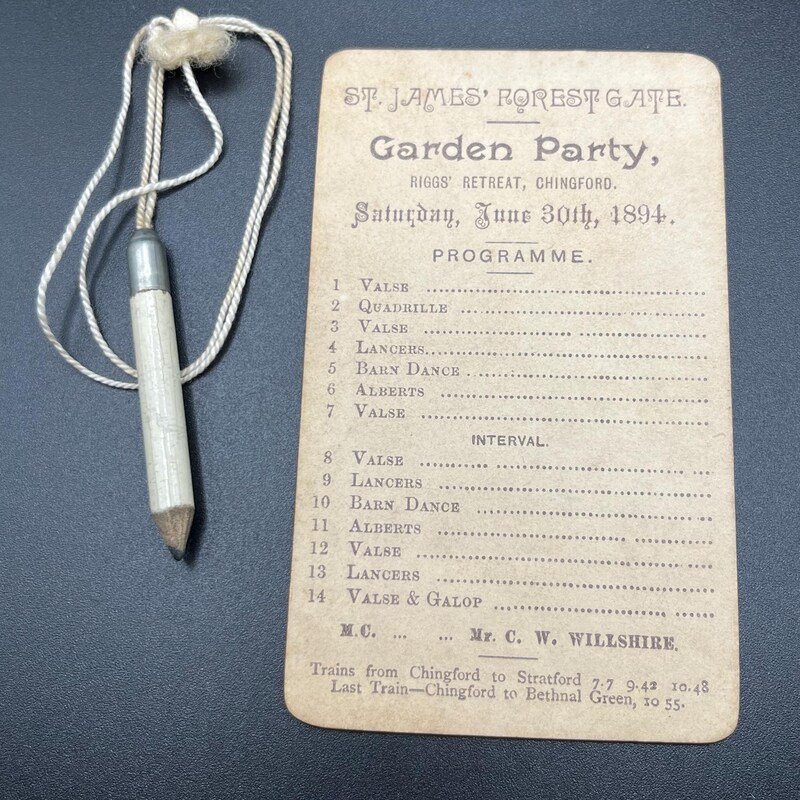 ST. JAMES' FOREST GATE.
Garden Party,
RIGGS' RETREAT, CHINGFORD.
Saturday, June 30th, 1894.
PROGRAMME.
1 VALSE
2 QUADRILLE
3 VALSE
4 LANCERS
5 BARN DANCE
6 ALBERTS
7 VALSE
INTERVAL.
8 VALSE
9 LANCERS
10 BARN DANCE
11 ALBERTS
12 VALSE
13 LANCERS
14 VALSE & GALOP
M.C. ... ... Mr. C. W. WILLSHIRE.
Trains from Chingford to Stratford 7.7 9.42 10.48
Last Train—Chingford to Bethnal Green, 10 55.